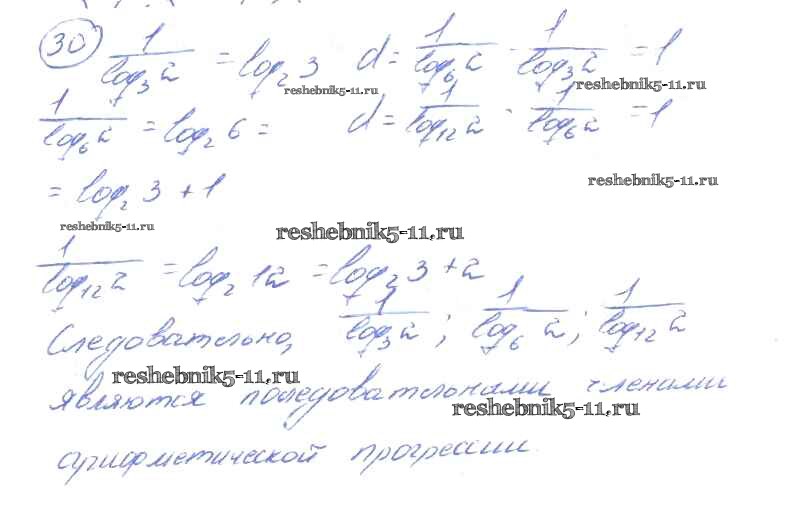 30 1/log₃2 = log₂3 d = 1/log₆2 - 1/log₃2 = 1
reshebnik5-11.ru reshebnik5-11.ru
1/log₆2 = log₂6 = d = 1/log₁₂2 - 1/log₆2 = 1
= log₂3 + 1 reshebnik5-11.ru
reshebnik5-11.ru reshebnik5-11.ru
1/log₁₂2 = log₂12 = log₂3 + 2
Следовательно, 1/log₃2 ; 1/log₆2 ; 1/log₁₂2
reshebnik5-11.ru
являются последовательными членами
reshebnik5-11.ru
арифметической прогрессии.